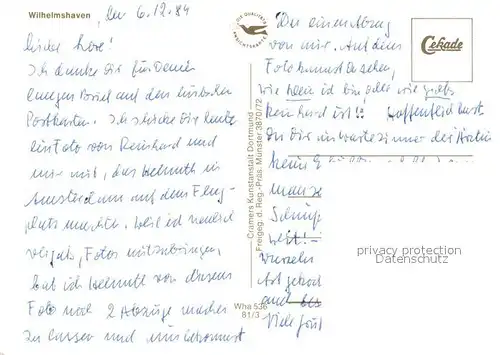 Wilhelmshaven
, den 6.12.84
Liebe Lore!
Ich danke Dir für Deinen
langen Brief auf den hübschen
Postkarten. Ich schicke Dir heute
ein Foto von Reinhard und
mir mit, das Helmuth in
Amsterdam auf dem Flug-
platz machte. Weil ich neulich
vergaß, Fotos mitzubringen,
bat ich Helmuth von diesem
Foto noch 2 Abzüge machen
zu lassen und nun bekommst
DIE QUALITÄTS
ANSICHTSKARTE
Cramers Kunstanstalt Dortmund
Freigeg. d. Reg.-Präs. Münster 3870/72
Wha 536
81/3
Du einen Abzug
von mir. Auf dem
Foto kannst Du sehen,
wie klein ich bin oder wie groß
Reinhard ist!!! Hoffentlich hast
Du Dir im Wartezimmer der Ärztin
keine
Schnupf
weit!
Vielen
Art
und
Viele
Cekade
privacy protection
Datenschutz